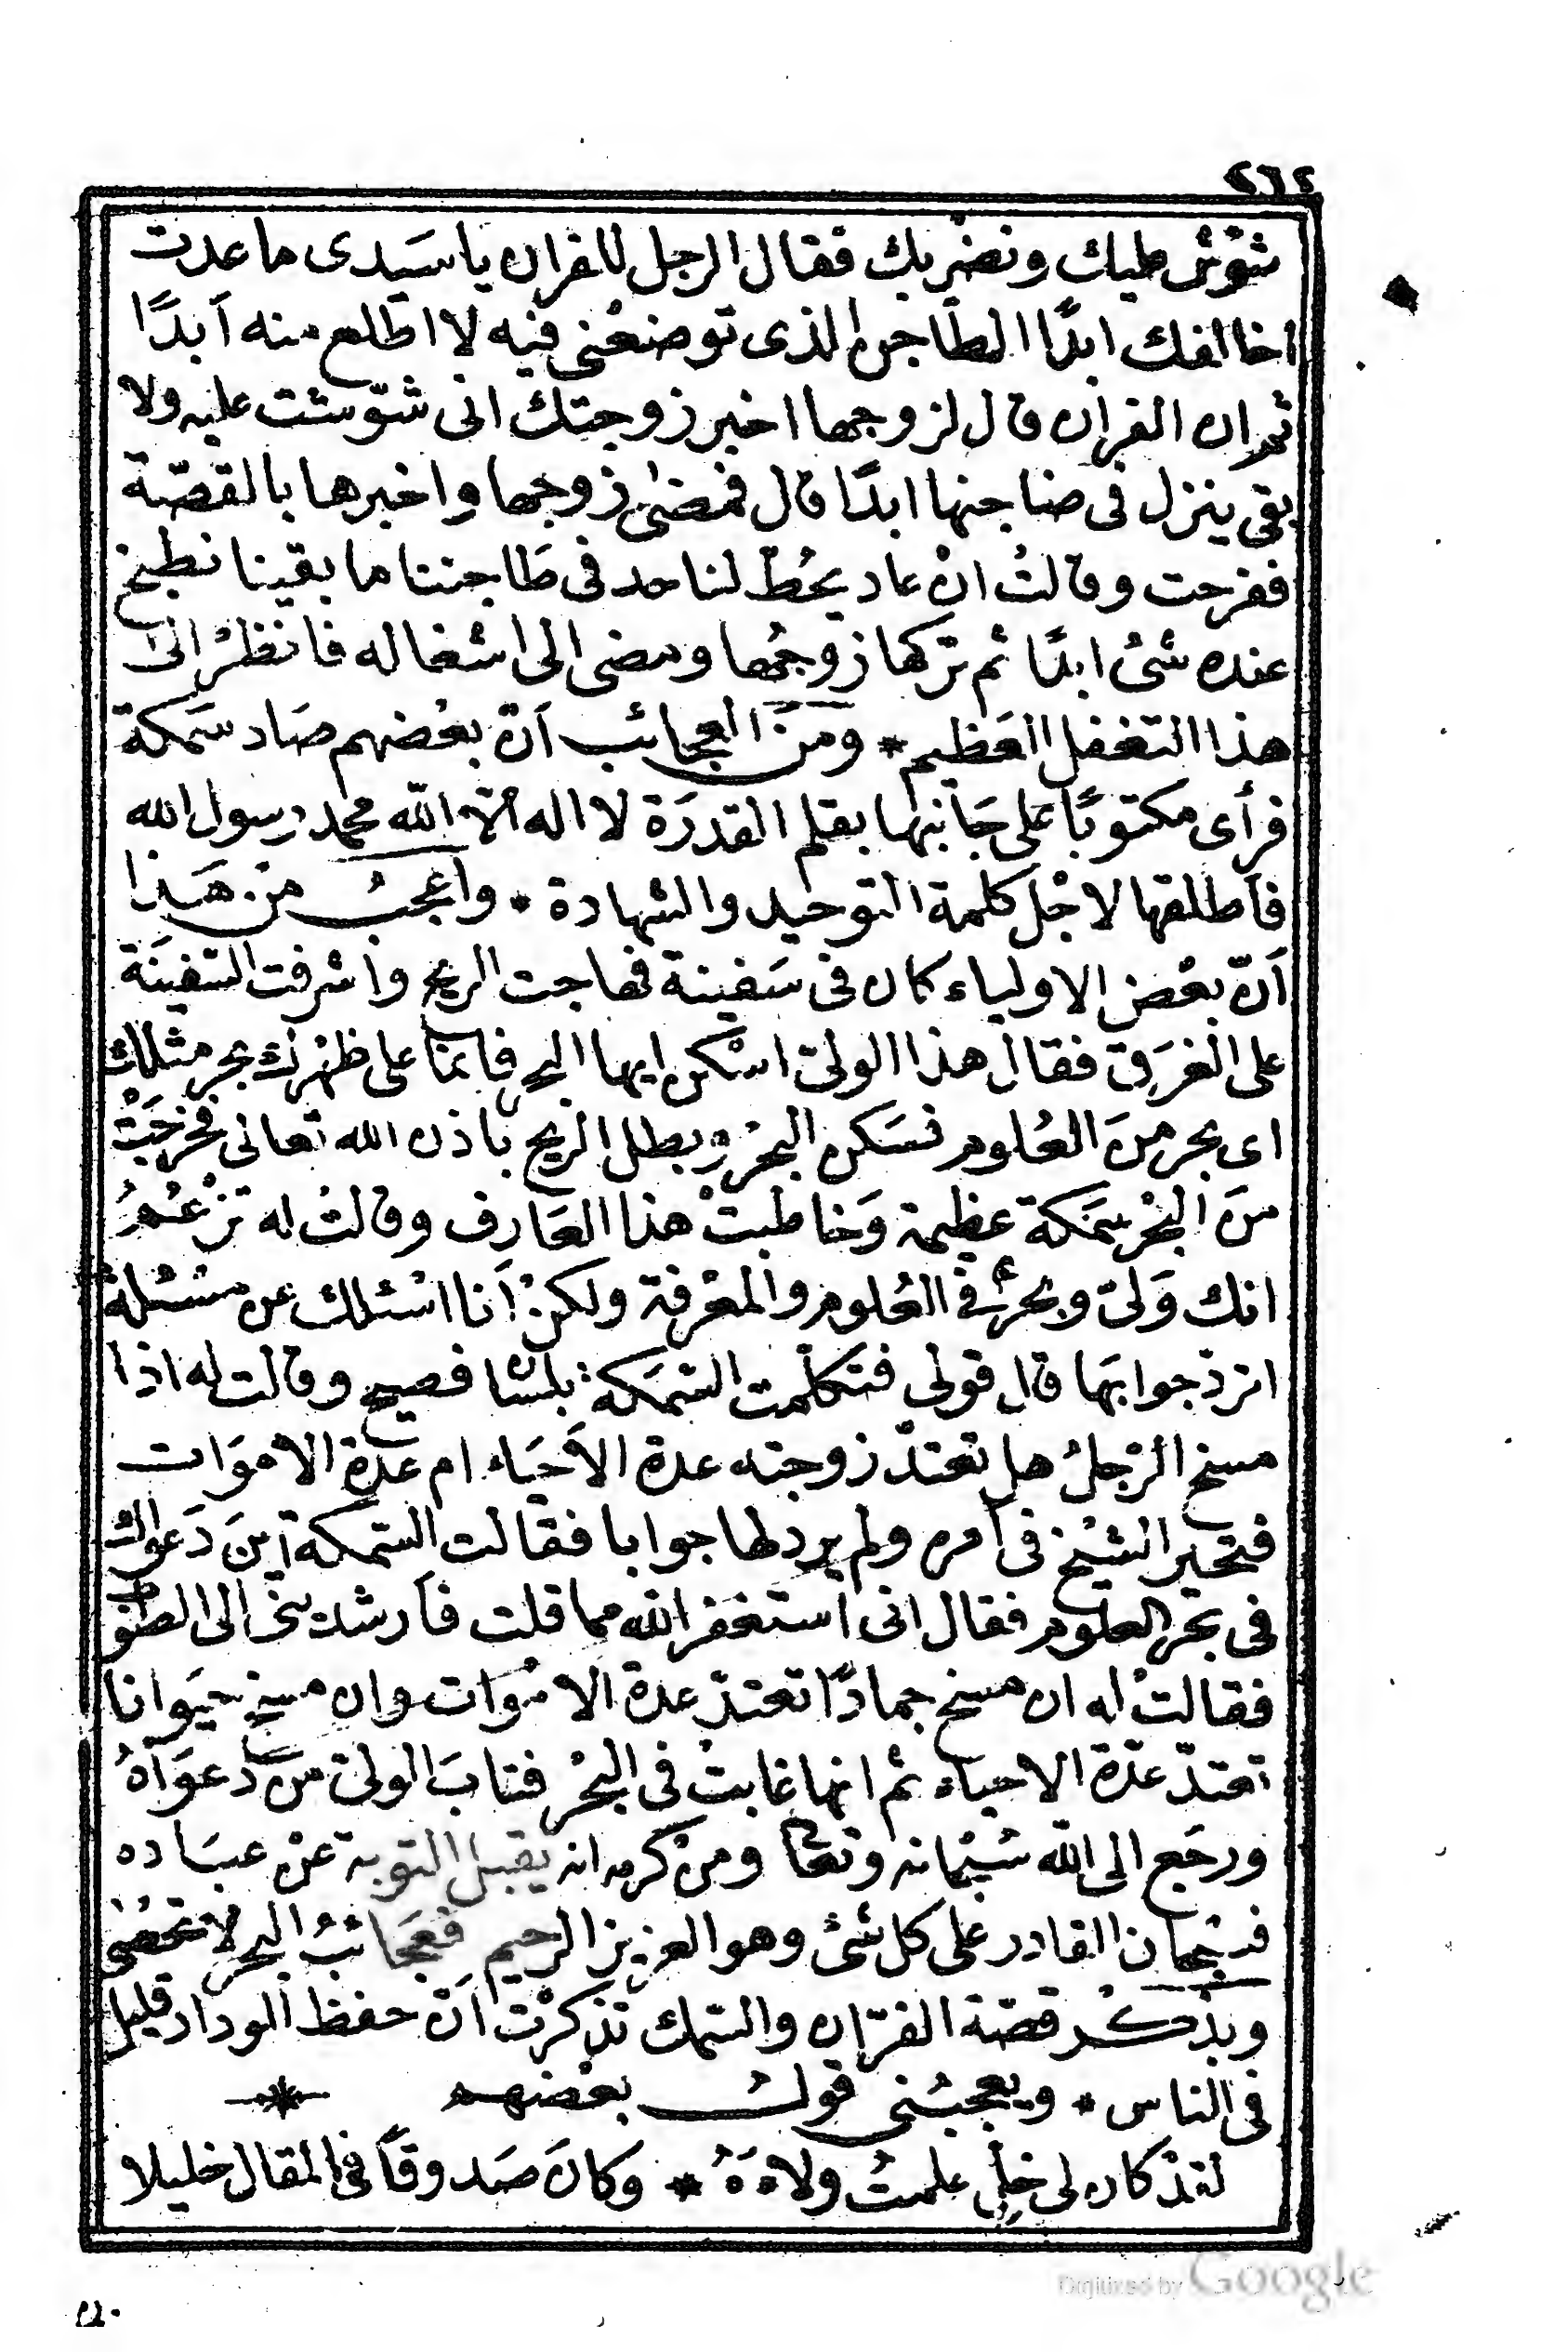 ٢٦٤
شوّش عليك ونضربك فقال الرجل للفران يا سَيدى ما عدت
اخالفك ابدًا الطّاجن الذى توضعْنى فيه لا اطلع منه أبدًا
ثم ان الفران قال لزوجها اخبر زوجتك انى شوّشت عليه ولا
بقى ينزل فى ضناجنها ابدًا قال فمضىٰ زوجها واخبرها بالقصّة
ففرحت وقالتْ انْ عاد يحُطّ لنا حد فى طَاجننا ما بقينا نطبخ
عنده شئ ابدًا ثم تركها زوجُها ومضى الى اشغاله فانظرْ الىٰ
هذا التغفل العَظيم * ومَنَ العجائب أنّ بعْضهم صَاد سَمكة
فرأى مكتوبًا على جَانبها بقلم القدرَة لا اله الّا الله محمد رسول الله
فأطلقها لاجْل كلمة التوحيد والشهادة * واعْجبُ منْ هَذا
أنّ بعْض الاولياء كان فى سَفينة فهاجت الريح وأشرفت السّفينَة
على الغَرَق فقال هذا الولىّ اسْكن ايها البحر فانما على ظهْرك بحر مثلك
اى بحر منَ العُلوم فسَكن البحْر وبطل الريح باذن الله تعالى فخرجَتْ
منَ البحْر سَمَكة عظيمة وَخاطبتْ هذا العَارف وقالتْ له تزْعُمُ
انك وَلىّ وبحْرٌ فى العُلوم والمعْرفة ولكنْ أنا اسْئلك عن مسْئلة
اتردّ جوابَها قال قولى فتكلّمت السّمَكة بلسان فصيح وقالت له اذا
مسخ الرّجلُ هل تعْتدّ زوجته عدة الأحيَاء ام عدّة الامْوَات
فتحيّر الشيْخ فى أمره ولم يردّ لها جوابا فقالت السّمكة أينَ دَعواك
فى بحْر العلوم فقال انى أستغفر الله مما قلت فأرشدينى الى الصّواب
فقالتْ له ان مسخ جمادًا تعتدّ عدة الامْوات وان مسخ حيَوانا
تعتدّ عدّة الاحياء ثم انها غابتْ فى البحْر فتابَ الولىّ منْ دَعوَاهُ
ورجَع الى الله سُبْحانه وتعالى ومنْ كرمه انه يقبل التوبة عنْ عبَاده
فسُبْحان القادر على كل شئ وهو العزيز الرحيم فعَجائبُ البحر لا تحْصٰى
وبذكْر قصّة الفرّان والسّمك تذكرْت أنّ حفظ الوداد قليل
فى الناس * ويعجبُنى قولُ بعْضهم *
لقدْ كان لى خلٌّ علمتُ ولاءَهُ * وكانَ صَدوقًا فى المقال خليلا